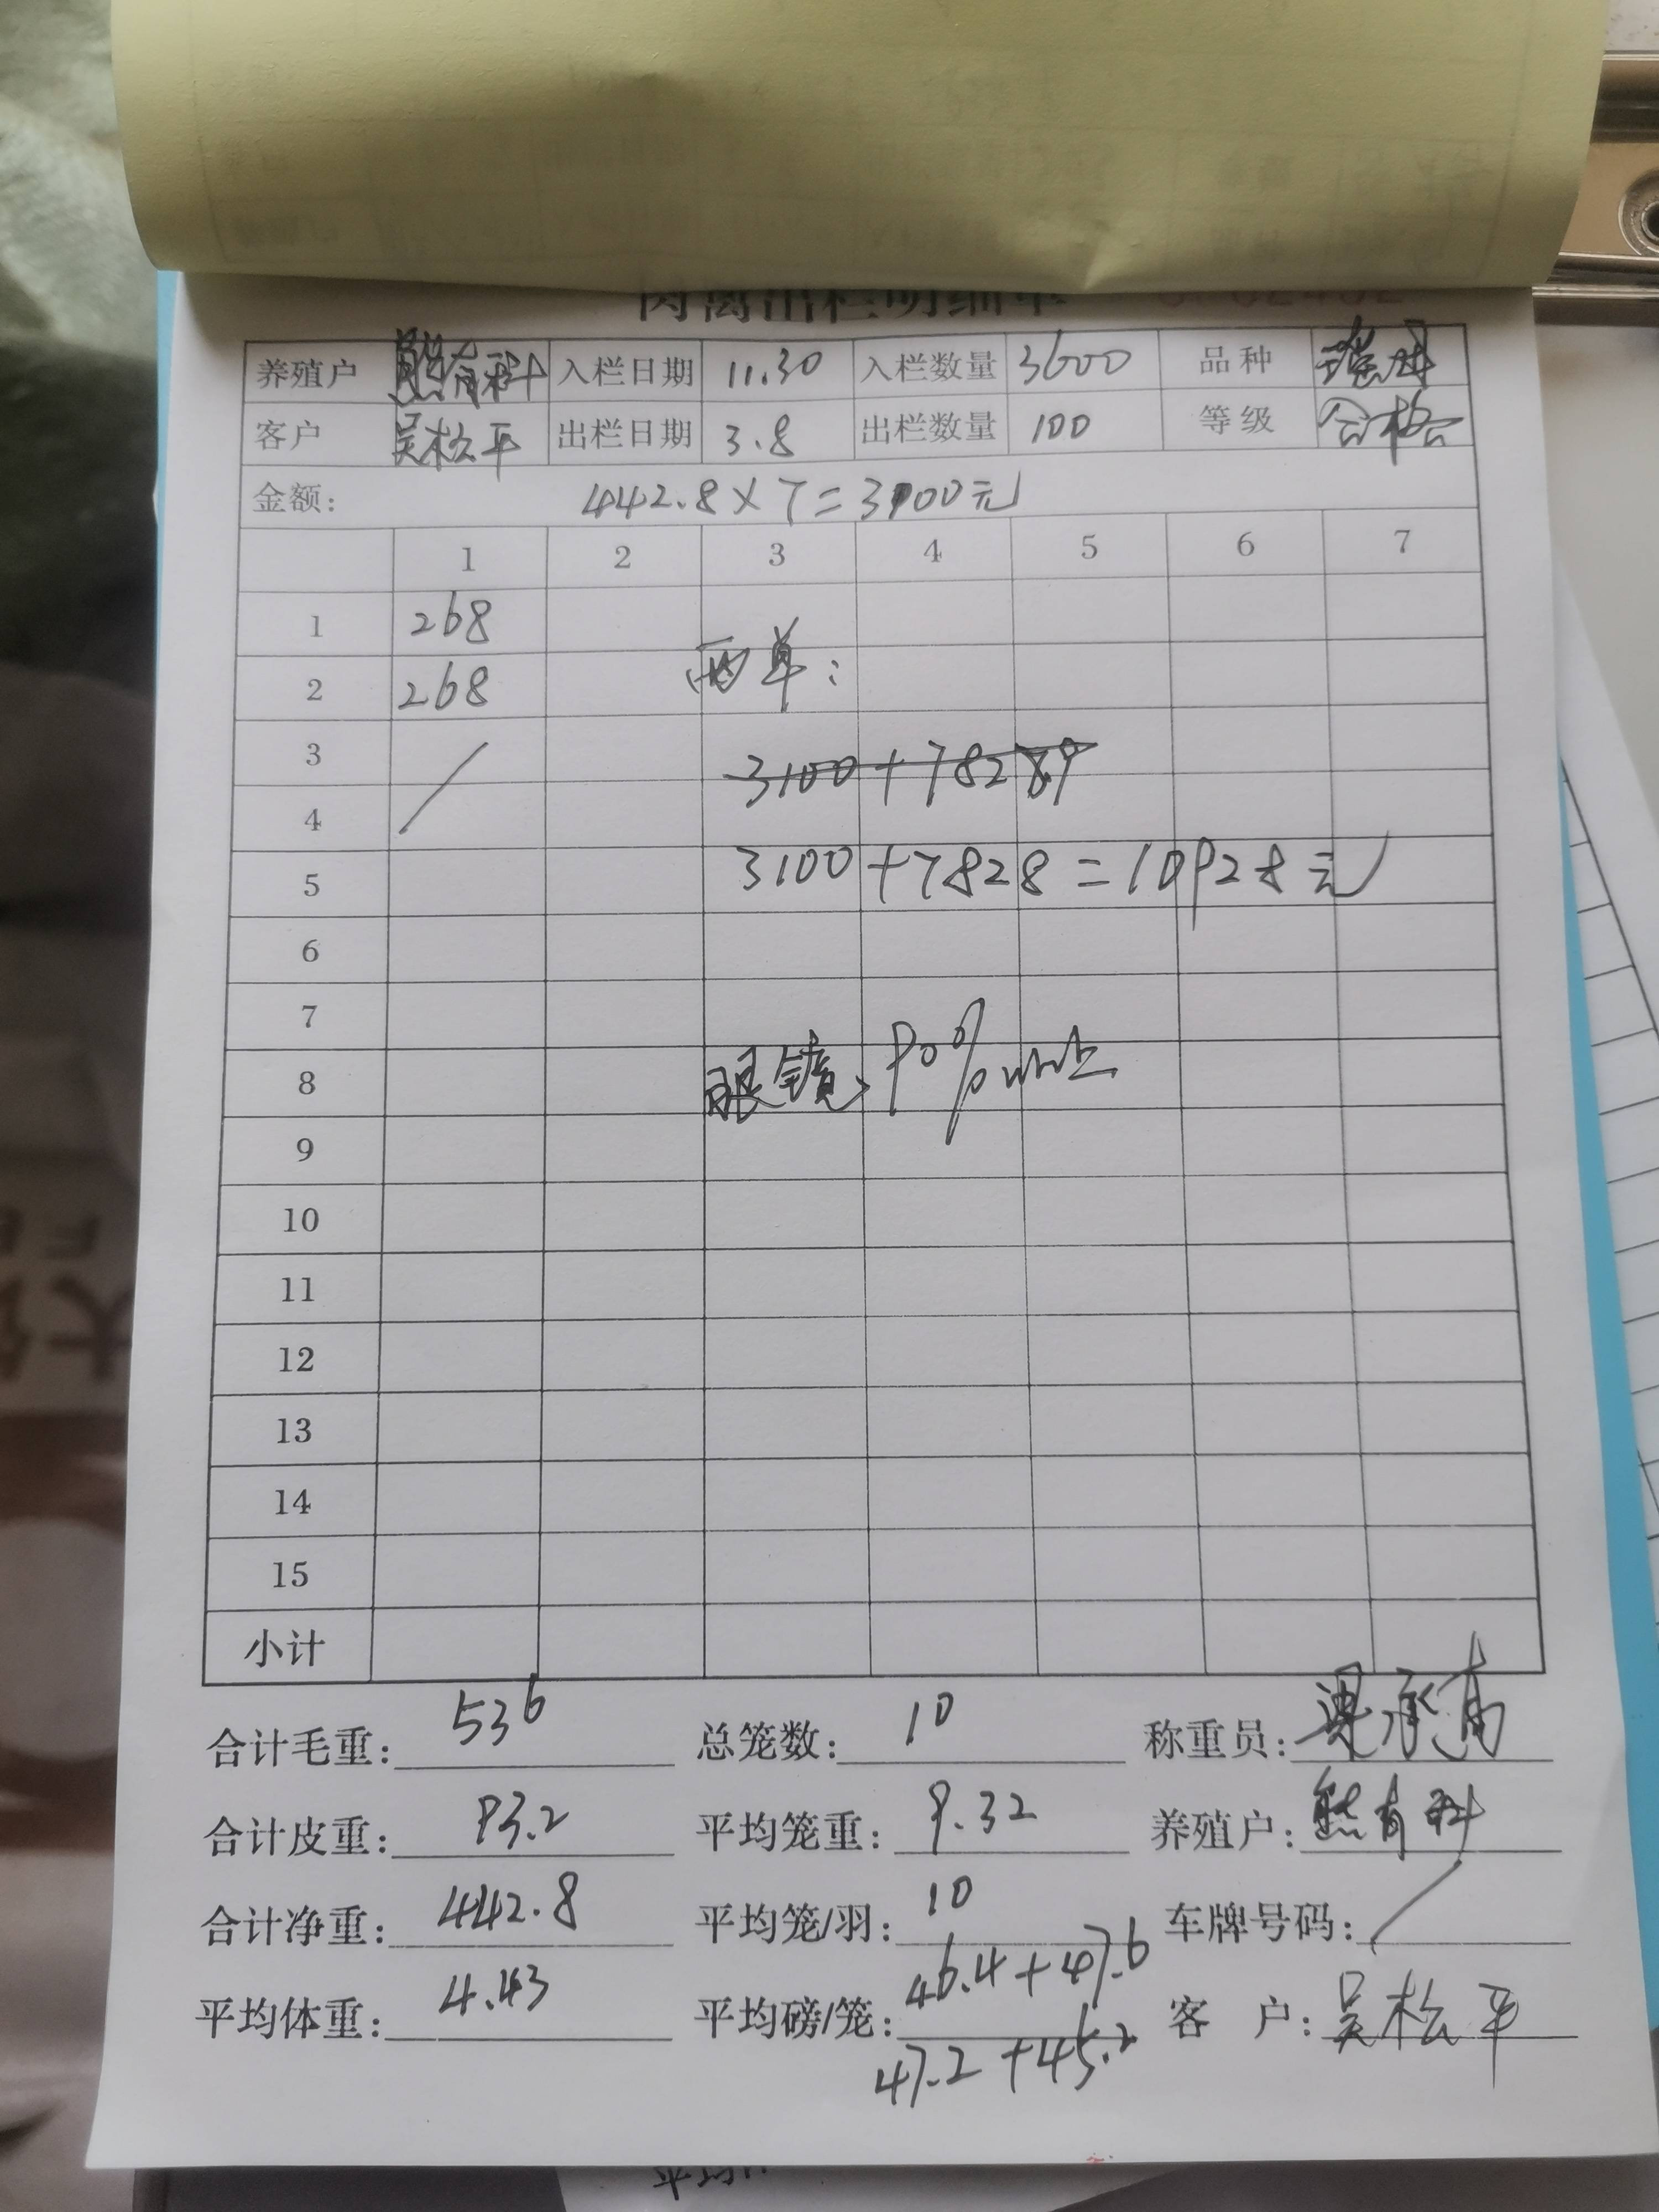 肉禽出栏明细单
养殖户 熊有科 入栏日期 11.30 入栏数量 3600 品种
客户 吴松平 出栏日期 3.8 出栏数量 100 等级 合格
金额: 442.8×7=3100元
1 2 3 4 5 6 7
1 268
2 268 两单:
3 3100+78289
4
5 3100+7828=10928元
6
7
8 眼镜, 90%以上
9
10
11
12
13
14
15
小计
合计毛重: 536 总笼数: 10 称重员:
合计皮重: 93.2 平均笼重: 9.32 养殖户: 熊有科
合计净重: 442.8 平均笼/羽: 10 车牌号码:
平均体重: 4.43 平均磅/笼: 46.4+47.6 客 户: 吴松平
47.2+45.2